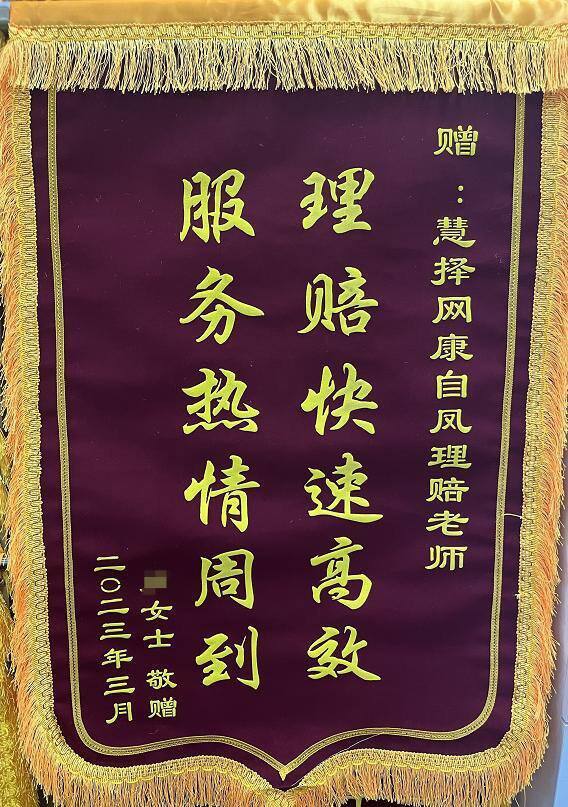 赠：慧择网康自凤理赔老师
理赔快速高效
服务热情周到
女士 敬赠
二〇二三年三月